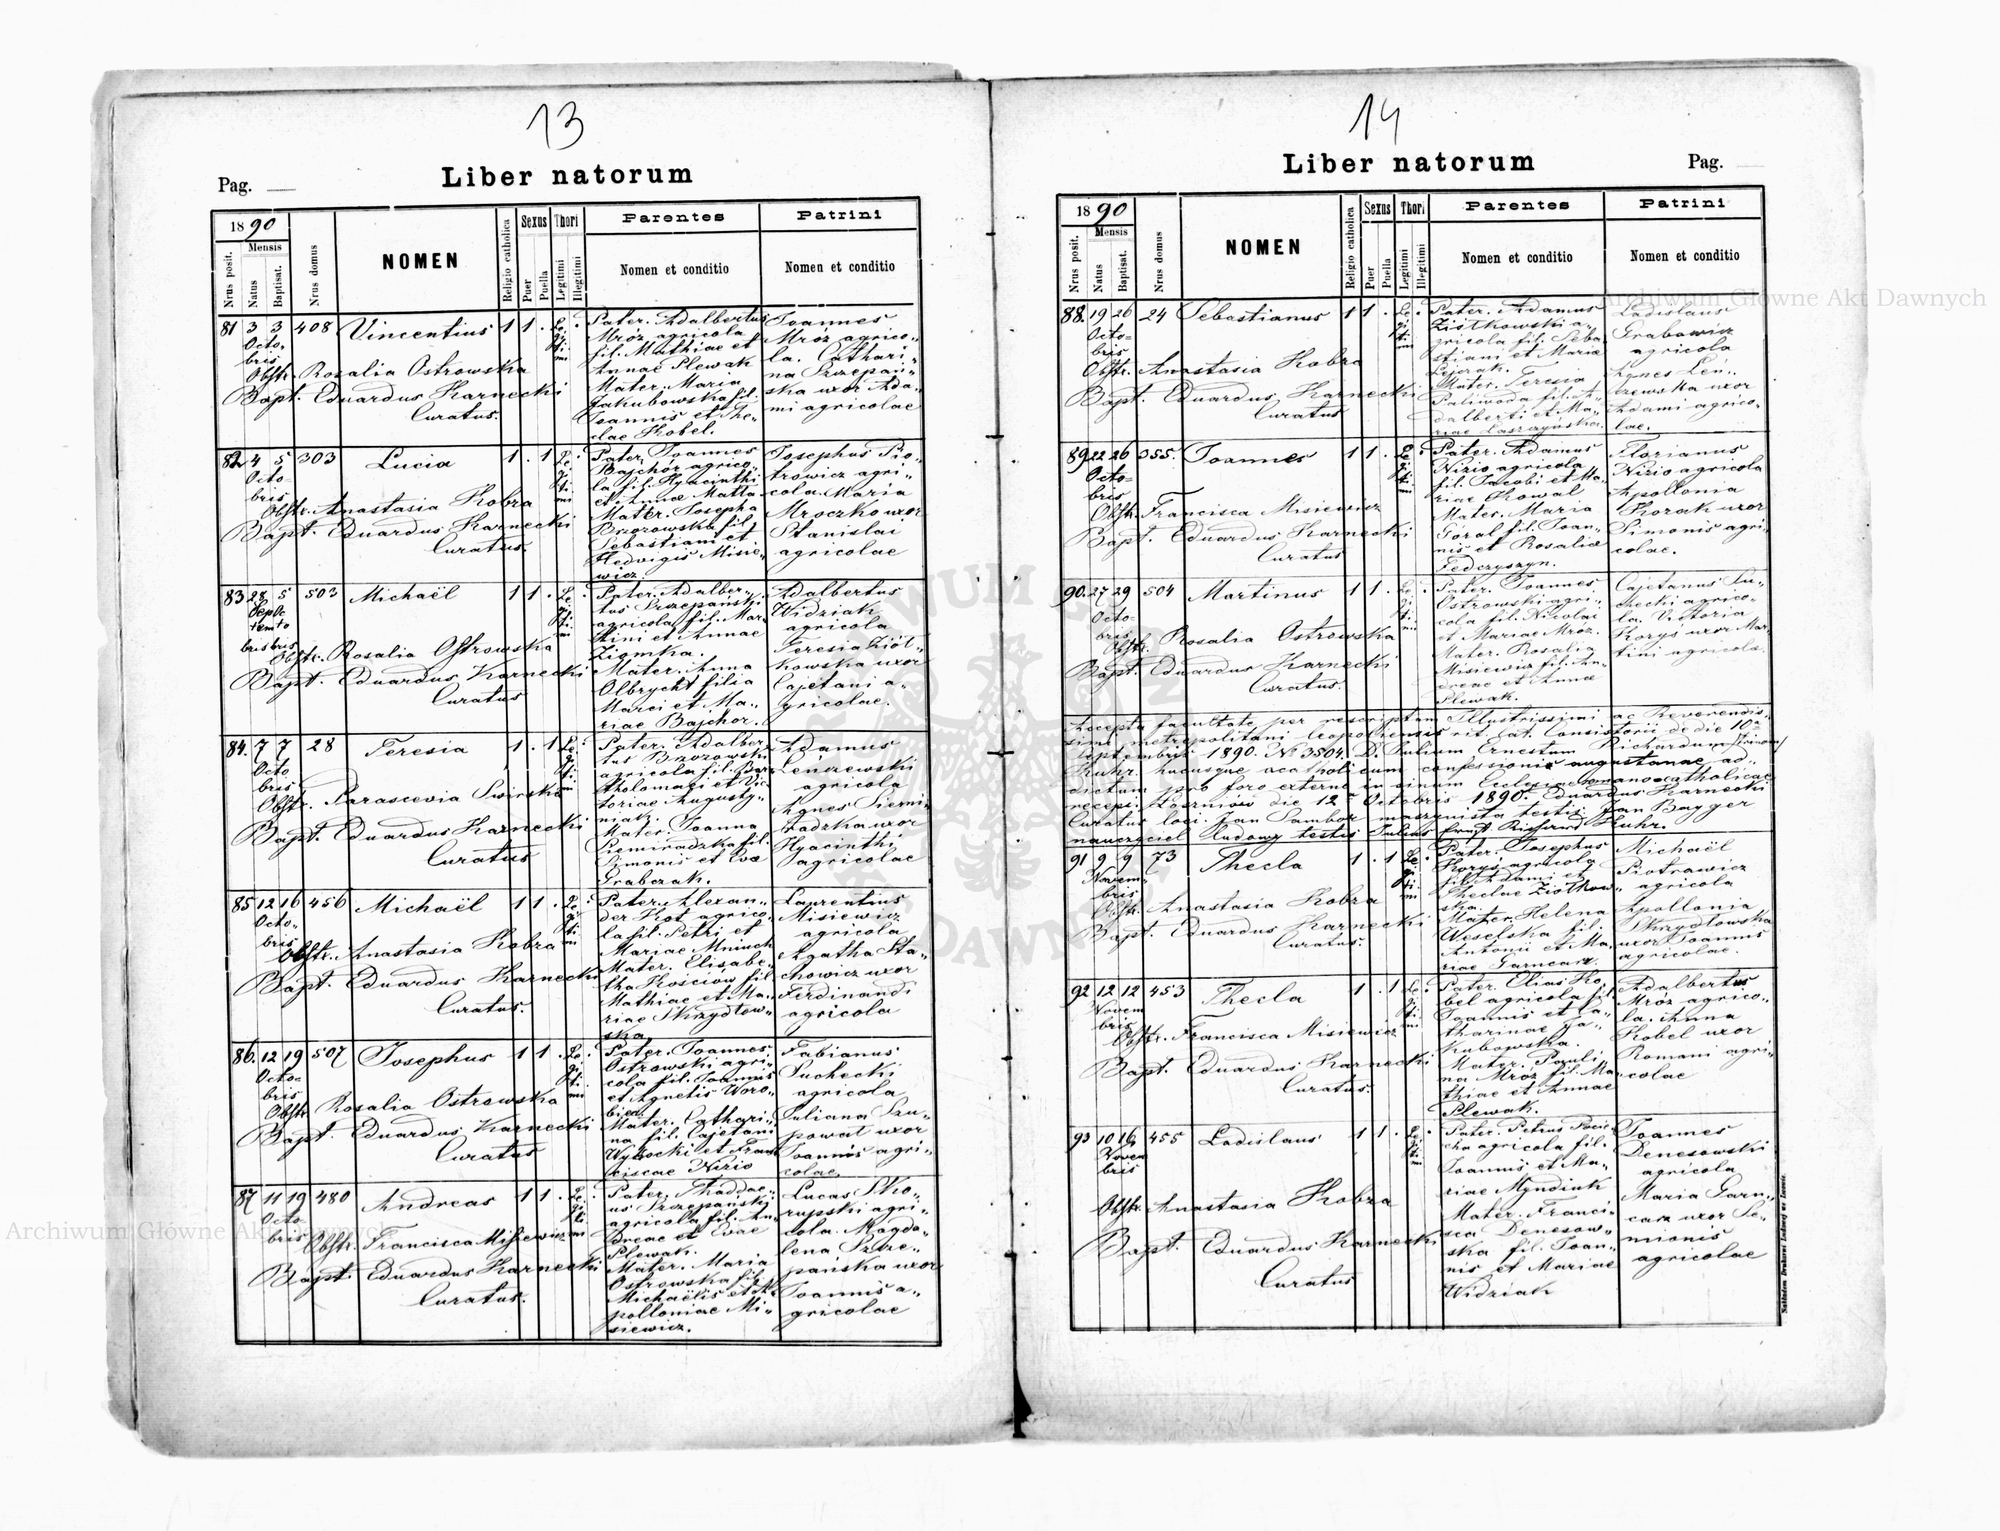 13
Liber natorum
Pag.
1890
Mensis
Nrus posit.
Natus
Baptisat.
Nrus domus
NOMEN
Religio catholica
Sexus
Puer
Puella
Thori
Legitimi
Illegitimi
Parentes
Nomen et conditio
Patrini
Nomen et conditio
81 3 3 408 Vincentius 1 1 .
Octo-
bris
Obstr. Rosalia Ostrowska
Bapt. Eduardus Karnecki
Curatus.
Pater. Adalbertus
Mróz agricola
fil. Mathiae et
Annae Plewak
Mater. Maria
Jakubowska fil.
Joannis et The-
clae Kobel.
Joannes
Mróz agrico-
la. Cathari-
na Szczepań-
ska uxor Ada-
mi agricolae
82 4 5 303 Lucia 1 . 1
Octo-
bris
Obstr. Anastasia Kobza
Bapt. Eduardus Karnecki
Curatus.
Pater. Joannes
Bajchor agrico-
la fil. Hyacinthi
et Annae Matta
Mater. Josepha
Brzozowska fil.
Sebastiani et
Hedvigis Misie-
wicz.
Josephus Pio-
trowicz agri-
cola. Maria
Mroczko uxor
Stanislai
agricolae
83 28 5 503 Michaël 1 1 .
Rosalia Ostrowska
Bapt. Eduardus Karnecki
Curatus
Pater. Adalber-
tus Szczepański
agricola fil. Mar-
tini et Annae
Ziomka.
Mater. Anna
Olbrycht filia
Marci et Ma-
riae Bajchor.
Adalbertus
Widziak
agricola
Teresia Ziół-
kowska uxor
Cajetani a-
gricolae.
84. 7 7 28 Teresia 1 . 1
Octo
bris
Obstr. Parascevia Świrska
Bapt. Eduardus Karnecki
Curatus
Pater. Adalber-
tus Brzozowski
agricola fil. Bar-
tholomaei et Vic-
toriae Augusty-
niak.
Mater. Joanna
Siemiradzka fil.
Simonis et Evae
Grabczak.
Adamus
Lenczewski
agricola
Agnes Siemi-
radzka uxor
Hyacinthi
agricolae
85 12 16 456 Michaël 1 1 .
Octo-
bris
Obstr. Anastasia Kobza
Bapt. Eduardus Karnecki
Curatus.
Pater. Alexan-
der Kot agrico-
la fil. Petri et
Mariae Mniuch
Mater. Elisabe-
tha Kościów fil.
Mathiae et Ma-
riae Skrzydłow-
ska
Laurentius
Misiewicz
agricola
Agatha Sta-
chowicz uxor
Ferdinandi
agricola
86. 12 19 507 Josephus 1 1 .
Octo-
bris
Obstr. Rosalia Ostrowska
Bapt. Eduardus Karnecki
Curatus
Pater. Joannes
Ostrowski agri-
cola fil. Joannis
et Agnetis Woro-
biec
Mater. Cathari-
na fil. Cajetani
Wysocki et Fran-
ciscae Nizio
Fabianus
Suchecki
agricola
Juliana Szu-
powat uxor
Joannis agri-
colae.
87 11 19 480 Andreas 1 1 .
Octo-
bris
Obstr. Francisca Misiewicz
Bapt. Eduardus Karnecki
Curatus.
Pater. Thaddae-
us Szczepański
agricola fil. An-
dreae et Evae
Plewak.
Mater. Maria
Ostrowska fil.
Michaëlis et A-
polloniae Mi-
siewicz.
Lucas Sko-
rupski agri-
cola. Magda-
lena Szcze-
pańska uxor
Joannis a-
gricolae
14
Liber natorum
Pag.
1890
Mensis
Nrus posit.
Natus
Baptisat.
Nrus domus
NOMEN
Religio catholica
Sexus
Puer
Puella
Thori
Legitimi
Illegitimi
Parentes
Nomen et conditio
Patrini
Nomen et conditio
88. 19 26 24 Sebastianus 1 1 .
Octo-
bris
Obstr. Anastasia Kobza
Bapt. Eduardus Karnecki
Curatus
Pater. Adamus
Ziółkowski a-
gricola fil. Seba-
stiani et Mariae
Mater. Teresia
Paliwoda fil. A-
dalberti et Ma-
riae Laszczyńska.
Ladislaus
Grabowicz
agricola
Agnes Len-
czewska uxor
Adami agrico-
lae.
89 22 26 355. Joannes 1 1 .
Octo-
bris
Obstr. Francisca Misiewicz
Bapt. Eduardus Karnecki
Curatus
Pater. Adamus
Nizio agricola
fil. Jacobi et Ma-
riae Kowal
Mater. Maria
Goral fil. Joan-
nis et Rosaliae
Fedczyszyn.
Florianus
Nizio agricola
Apollonia
Kozak uxor
Simonis agri-
colae.
90. 27 29 504 Martinus 1 1 .
Octo
bris
Obstr. Rosalia Ostrowska
Bapt. Eduardus Karnecki
Curatus.
Pater. Joannes
Ostrowski agri-
cola fil. Nicolai
et Mariae Mróz.
Mater. Rosalia
Misiewicz fil. An-
dreae et Annae
Plewak.
Cajetanus Su-
checki agrico-
la. Victoria
Koryś uxor Mar-
tini agricolae.
Accepta facultate per rescriptum Illustrissimi ac Reverendis-
simi metropolitani Leopoliensis rit. lat. Consistorii de die 10ª
Septembris 1890. № 3504. D. Julium Ernestum Richardum
Kuhr. hucusque acatholicum confessionis augustanae ad-
dictum pro foro externo in sinum Ecclesiae romano catholicae
recepi. Łoszniów die 12ª Octobris 1890. Eduardus Karnecki
Curatus loci. Jan Sambor maszynista testis. Jan Bagger
nauczyciel ludowy testis Julius Ernst Richard Kuhr.
91 9 9 73 Thecla 1 . 1
Novem-
bris
Obstr. Anastasia Kobza
Bapt. Eduardus Karnecki
Curatus.
Pater. Josephus
Koryś agricola
fil. Adami et
Theclae Ziółkow-
ska.
Mater. Helena
Weselska fil.
Antonii et Ma-
riae Garncarz.
Michaël
Piotrowicz
agricola
Apollonia
Skrzydłowska
uxor Joannis
agricolae.
92 12 12 453 Thecla 1 . 1
Novem
bris
Obstr. Francisca Misiewicz
Bapt. Eduardus Karnecki
Curatus.
Pater. Elias Ko-
bel agricola fil.
Joannis et Ca-
tharinae Ja-
kubowska.
Mater. Pauli-
na Mróz fil. Ma-
thiae et Annae
Plewak.
Adalbertus
Mróz agrico-
la. Anna
Kobel uxor
Romani agri-
colae
93 10 16 455 Ladislaus 1 1 .
Novem
bris
Obstr. Anastasia Kobza
Bapt. Eduardus Karnecki
Curatus
Pater. Petrus
agricola fil.
Joannis et Ma-
riae Myndiuk
Mater. Franci-
sca Denesow-
ska fil. Joan-
nis et Mariae
Widziak
Joannes
Denesowski
agricola
Maria Garn-
carz uxor Se-
mionis
agricolae
Nakładem Drukarni Ludowej we Lwowie.
Archiwum Główne Akt Dawnych
Archiwum Główne Akt Dawnych